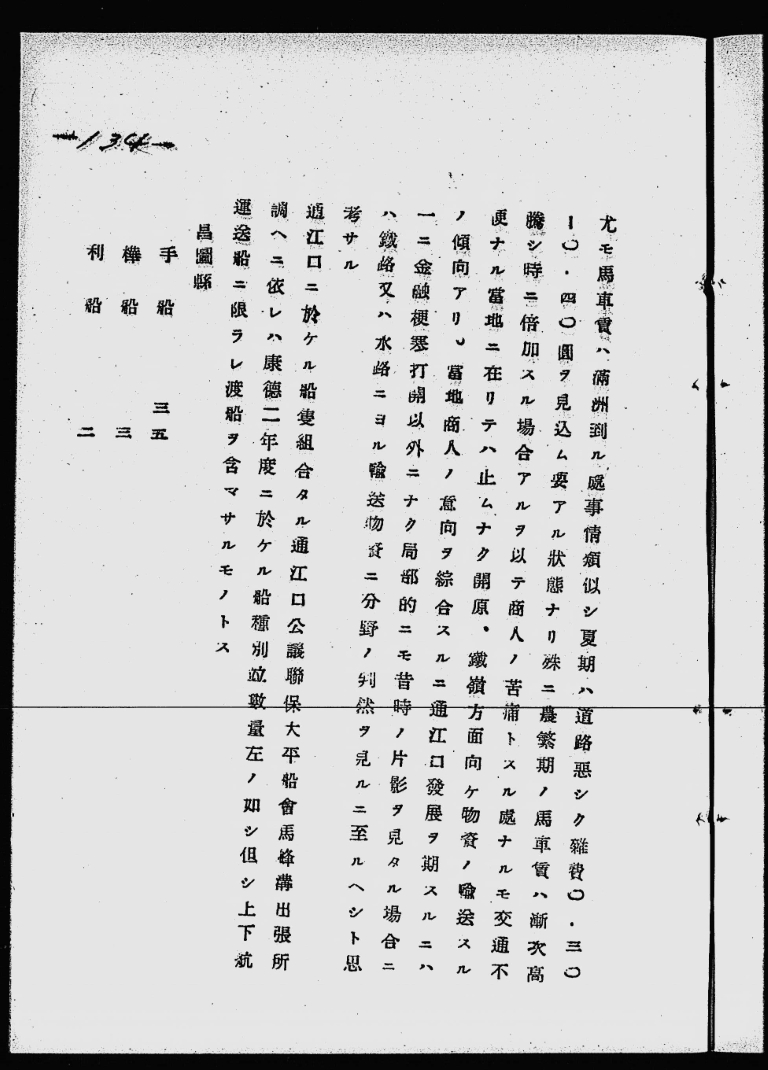 尤モ馬車賃ハ滿洲到ル處事情類似シ夏期ハ道路惡シク雜費〇・三〇
ー〇・四〇圓ヲ見込ム要アル狀態ナリ殊ニ農繁期ノ馬車賃ハ漸次高
騰シ時ニ倍加スル場合アルヲ以テ商人ノ苦痛トスル處ナルモ交通不
便ナル當地ニ在リテハ止ムナク開原、鐵嶺方面向ケ物資ノ輸送スル
ノ傾向アリ。當地商人ノ意向ヲ綜合スルニ通江口發展ヲ期スルニハ
一ニ金融梗塞打開以外ニナク局部的ニモ昔時ノ片影ヲ見タル場合ニ
ハ鐵路又ハ水路ニヨル輸送物資ニ分野ノ判然ヲ見ルニ至ルヘシト思
考サル
通江口ニ於ケル船隻組合タル通江口公議聯保大平船會馬蜂溝出張所
調ヘニ依レハ康德二年度ニ於ケル船種別竝數量左ノ如シ但シ上下航
運送船ニ限ラレ渡船ヲ含マサルモノトス
昌圖縣
手船 三五
樺船 三
利船 二
-134-